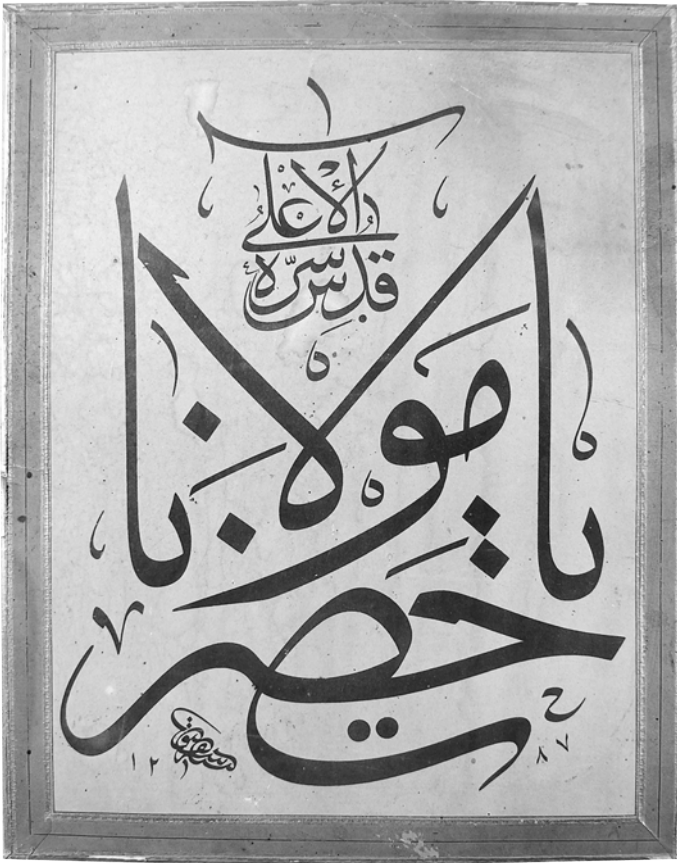 يا حضرت
مولانا
قدس سرّه
الأعلى
١٢٨٧